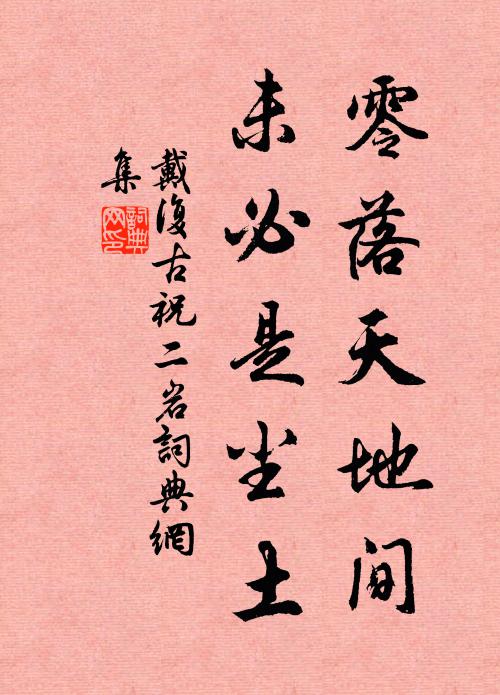 零落天地间
未必是尘土
戴復古祝二岩詞典網
集
詞典
网印